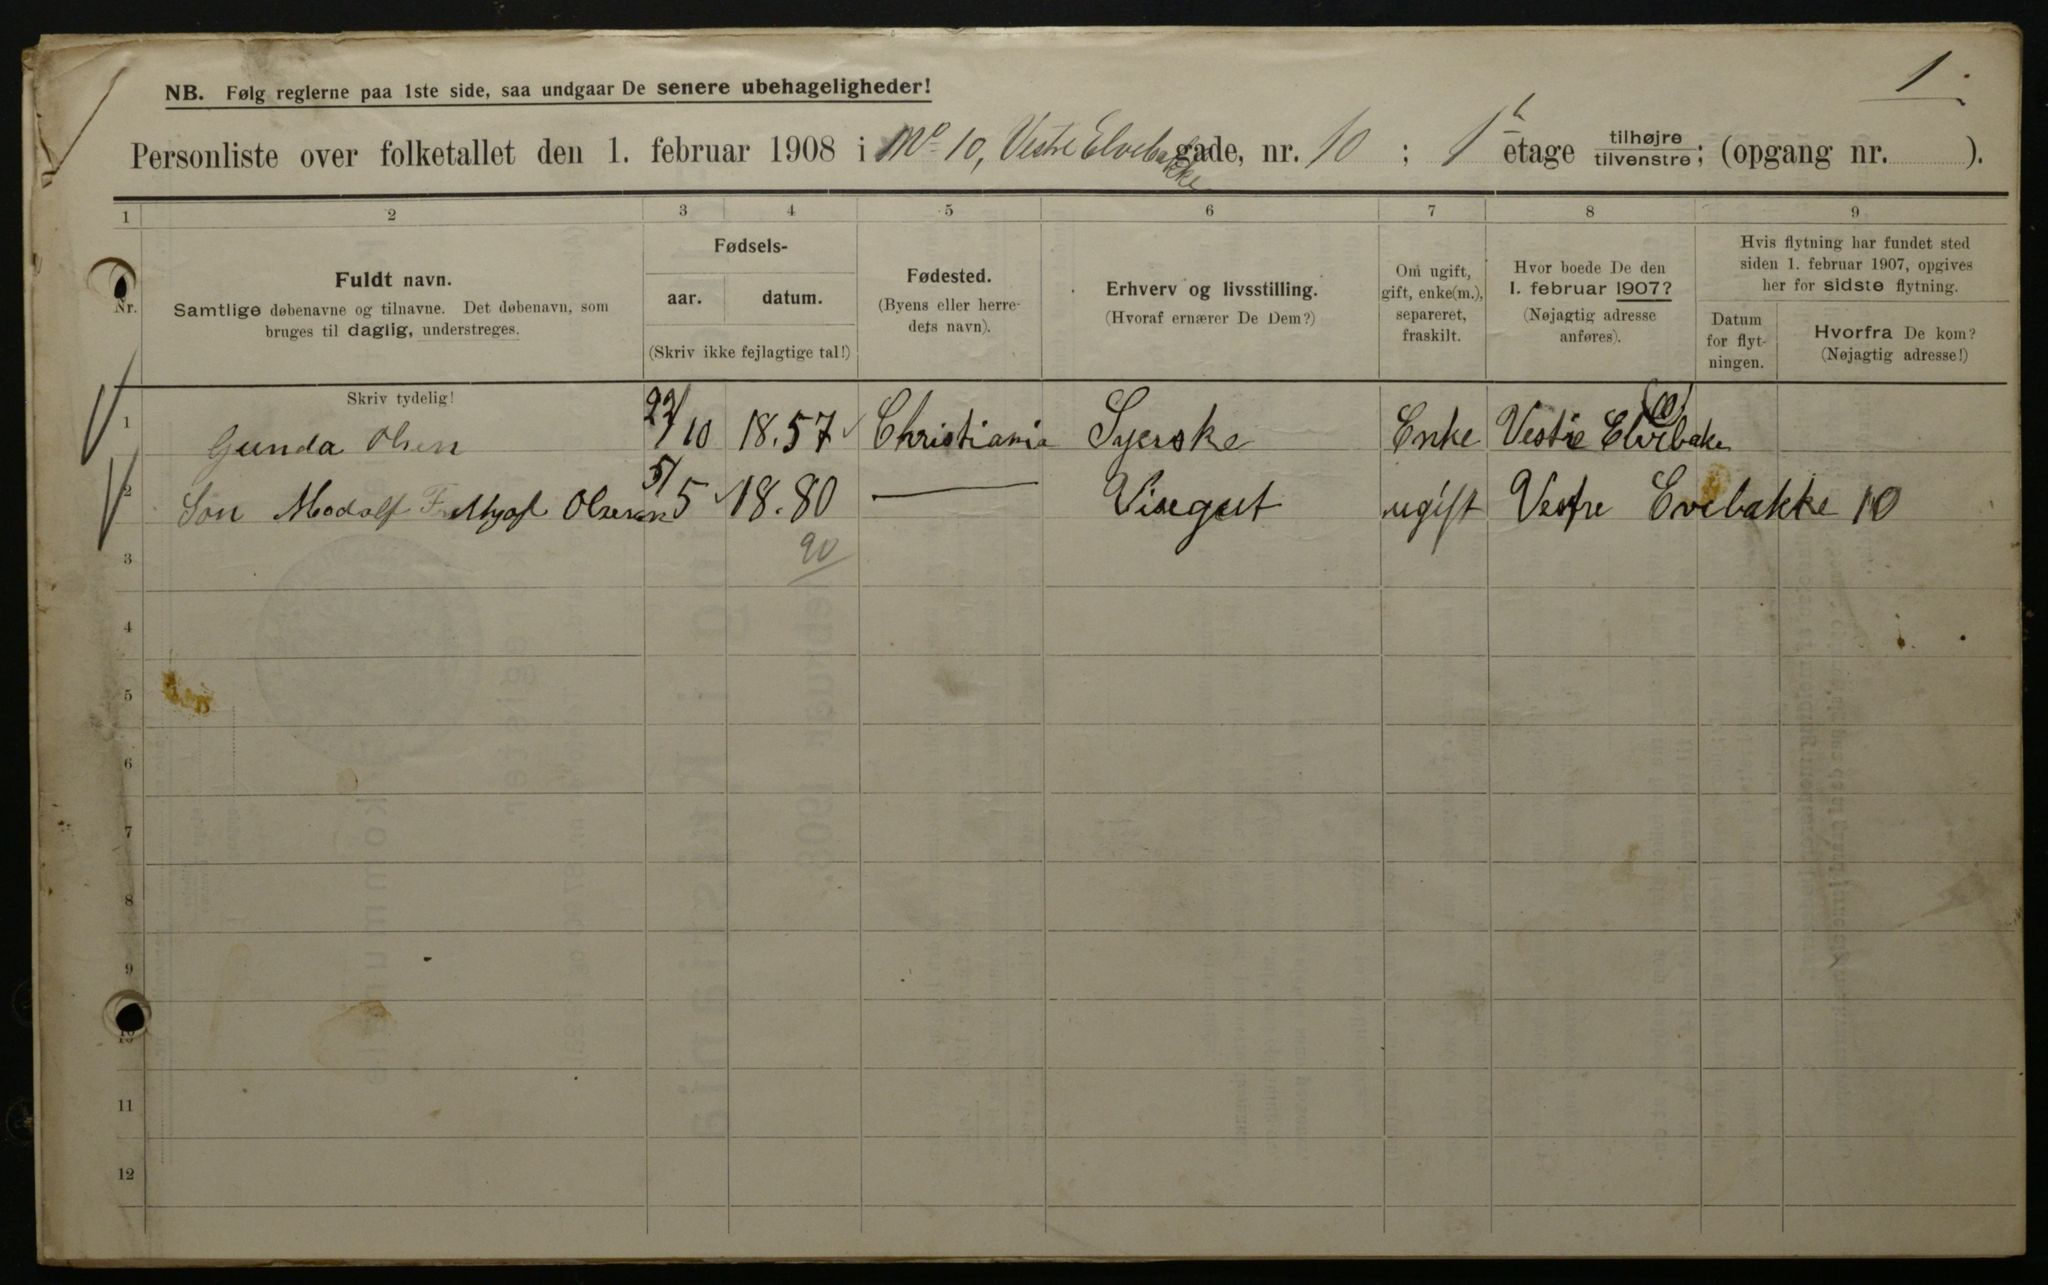 1.
NB. Følg reglerne paa 1ste side, saa undgaar De senere ubehageligheder!
Personliste over folketallet den 1. februar 1908 i No 10, Vestre Elvebakke gade, nr. 10 ; 1ste etage tilhøjre tilvenstre; (opgang nr. ).
1 2 3 4 5 6 7 8 9
Nr.
Fuldt navn.
Samtlige døbenavne og tilnavne. Det døbenavn, som
bruges til daglig, understreges.
Fødsels-
aar. datum.
(Skriv ikke fejlagtige tal!)
Fødested.
(Byens eller herre-
dets navn).
Erhverv og livsstilling.
(Hvoraf ernærer De Dem?)
Om ugift,
gift, enke(m.),
separeret,
fraskilt.
Hvor boede De den
1. februar 1907?
(Nøjagtig adresse
anføres).
Hvis flytning har fundet sted
siden 1. februar 1907, opgives
her for sidste flytning.
Datum
for flyt-
ningen.
Hvorfra De kom?
(Nøjagtig adresse!)
Skriv tydelig!
1 Gunda Olsen 22/10 18.57 Christiania Syerske Enke Vestre Elvebake (10)
2 Son Modolf Olsen 5/5 18.80 — Visegut ugift Vestre Evebakke 10
90
3
4
5
6
7
8
9
10
11
12